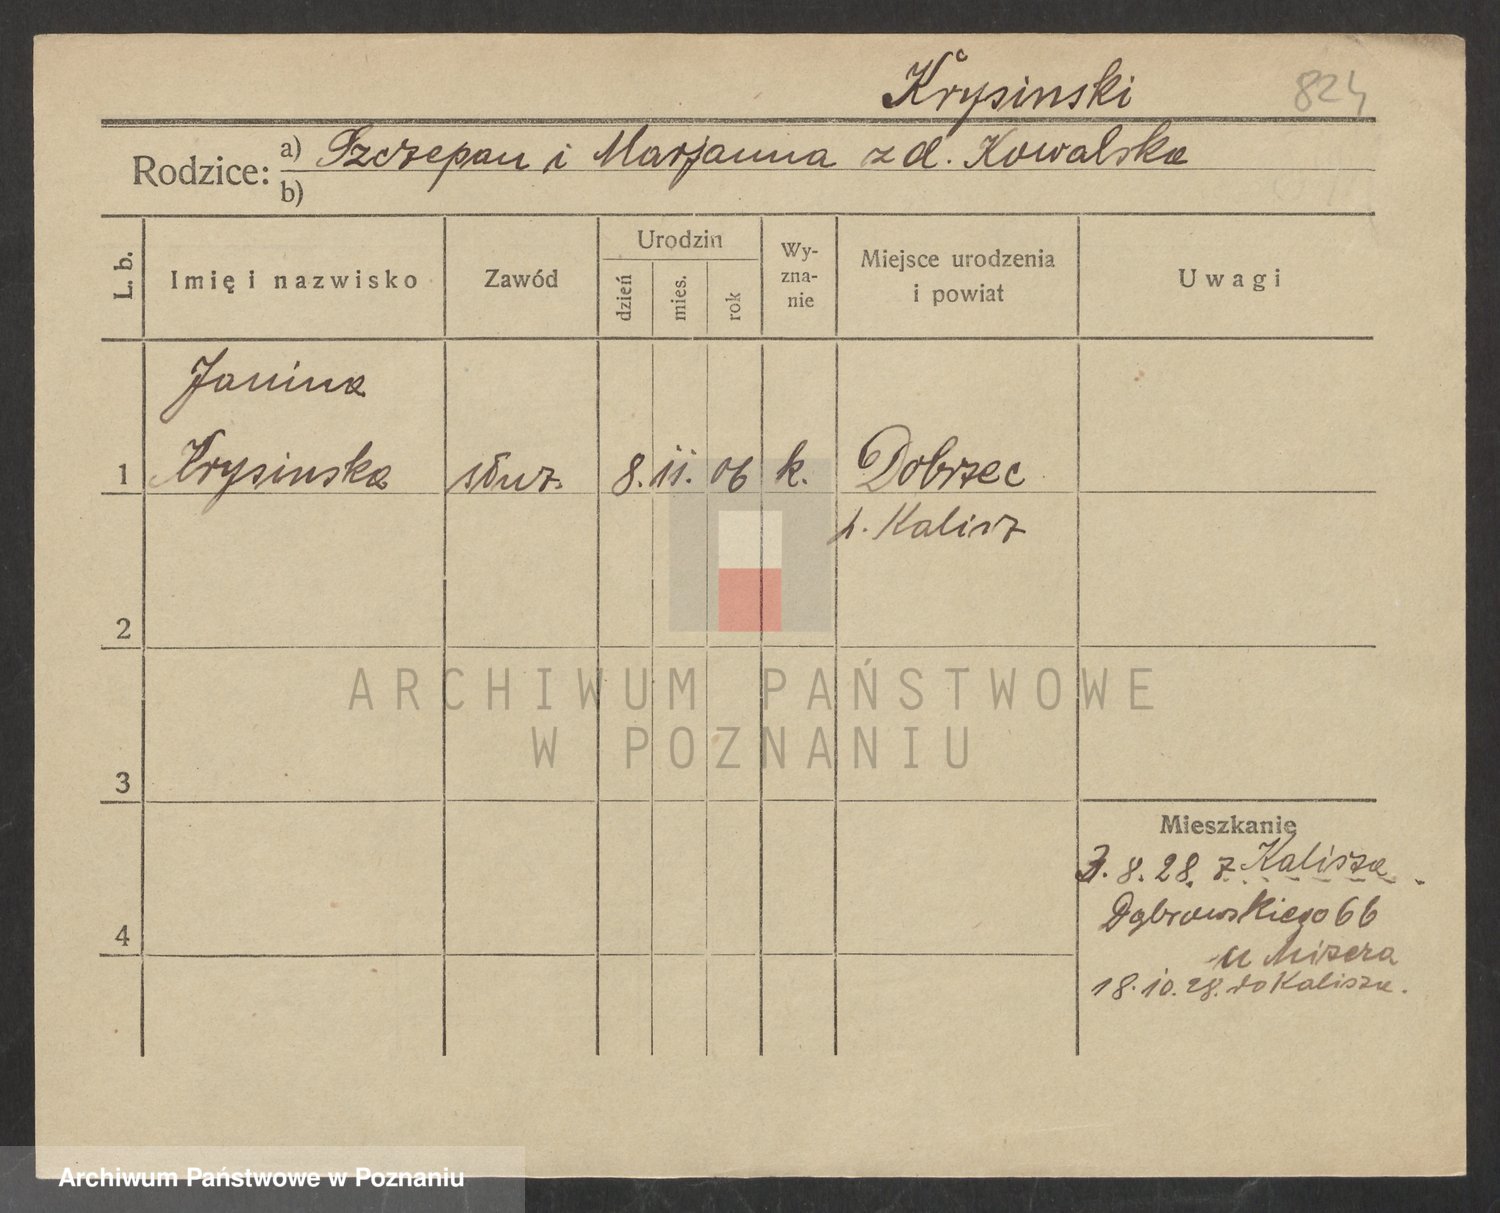 Krysinski 824
Rodzice: a) Szczepan i Marjanna z d. Kowalska
b)
L. b. Imię i nazwisko Zawód Urodzin dzień mies. rok Wy-zna-nie Miejsce urodzenia i powiat Uwagi
Janina
1 Krysinska służ. 8. 11. 06 k. Dobrzec
p. Kalisz
2
ARCHIWUM PAŃSTWOWE
W POZNANIU
3
Mieszkanie
3. 8. 28 z Kalisza
Dąbrowskiego 66
4
u Misera
18. 10. 28. do Kalisza.
Archiwum Państwowe w Poznaniu